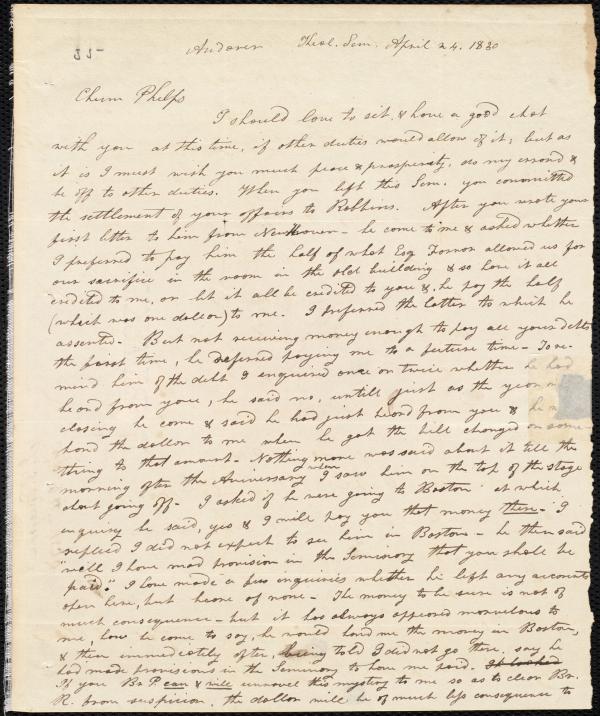 22-
Andover Theol. Sem. April 24. 1830
Chum Phelps
I should love to sit & have a good chat
with you at this time, if other duties would allow of it; but as
it is I must wish you much peace & prosperity, do my errand &
be off to other duties. When you left this Sem. you committed
the settlement of your affairs to Robbins. After you wrote your
first letter to him from New Haven - he come to me & asked whether
I preferred to pay him the half of what Esq Farrar allowed us for
our sacrifice in the room in the old building & so have it all
credited to me, or let it all be credited to you & he pay the half
(which was one dollar) to me. I preferred the latter to which he
assented. But not receiving money enough to pay all your debts
the first time, he deferred paying me to a future time - To re-
mind him of the debt I enquired once or twice whether he had
heard from you, he said no, untill just as the year
closing he come & said he had just heard from you & he
hand the dollar to me when he got the bill changed or some-
thing to that amount. Nothing more was said about it till the
morning after the Aniversary when I saw him on the top of the stage
about going off. I asked if he were going to Boston. at which
enquiry he said, yes & I will pay you that money there. I
replied I did not expect to see him in Boston - he then said
"well I have mad provision in the Seminary that you shall be
paid." I have made a few inquiries whether he left any accounts
open here, but heare of none - The money to be sure is not of
much consequence - but it has always appeared marvelous to
me, how he come to say, he would hand me the money in Boston,
& then immediately after, being told I did not go there, say he
had made provisions in the Seminary to have me paid. It looked
If you Br P can & will unravel this mystery to me so as to clear Br.
R. from suspicion, the dollar will be of much less consequence to